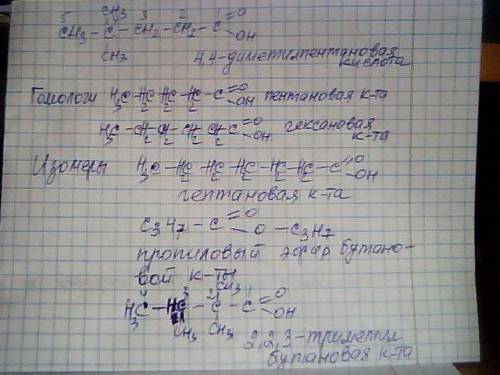 5 CH3 3 2 1 O
CH3 - C - CH2 - CH2 - C
OH
CH3 4,4-диметилпентановая
кислота
Гомологи H3C - H2C - H2C - H2C - C =O OH пентановая к-та
H3C - CH2 - CH2 - CH2 - CH2 - C =O OH гексановая
к-та
Изомеры H3C - H2C - H2C - H2C - H2C - H2C - C =O OH
гептановая к-та
C3H7 - C =O O - C3H7
пропиловый эфир бутано-
вой к-ты
4 3 CH3 2 1
H3C - HC - C - C =O OH
CH3 CH3
2,2,3-триметил
бутановая к-та